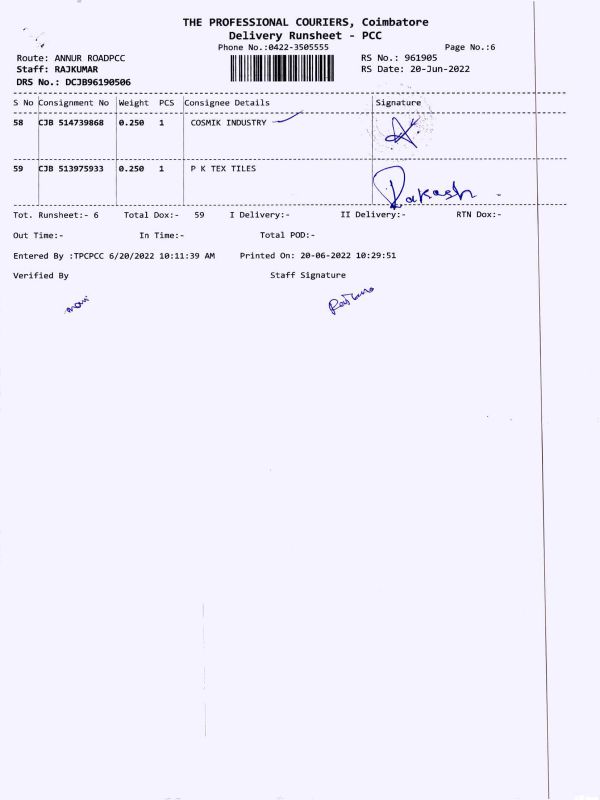 THE PROFESSIONAL COURIERS, Coimbatore
Delivery Runsheet - PCC
Phone No.:0422-3505555 Page No.:6
Route: ANNUR ROADPCC RS No.: 961905
Staff: RAJKUMAR RS Date: 20-Jun-2022
DRS No.: DCJB96190506
S No Consignment No Weight PCS Consignee Details Signature
58 CJB 514739868 0.250 1 COSMIK INDUSTRY
59 CJB 513975933 0.250 1 P K TEX TILES Rakash
Tot. Runsheet:- 6 Total Dox:- 59 I Delivery:- II Delivery:- RTN Dox:-
Out Time:- In Time:- Total POD:-
Entered By :TPCPCC 6/20/2022 10:11:39 AM Printed On: 20-06-2022 10:29:51
Verified By Staff Signature
mani